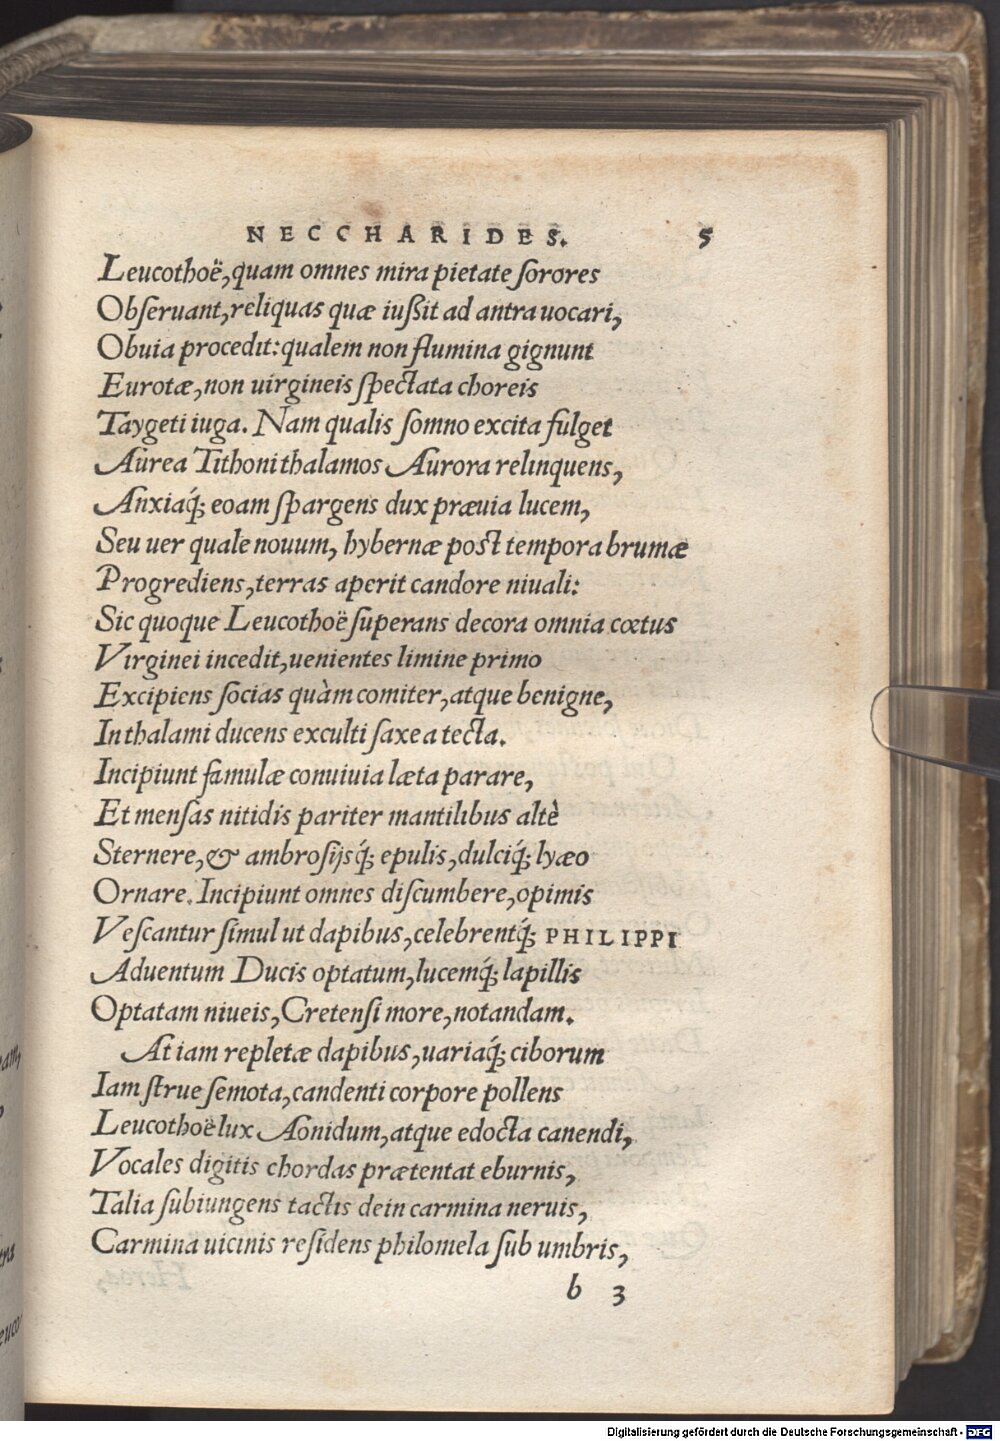 NECCHARIDES. 5
Leucothoë, quam omnes mira pietate sorores
Obseruant, reliquas quæ iußit ad antra uocari,
Obuia procedit: qualem non flumina gignunt
Eurotæ, non uirgineis spectata choreis
Taygeti iuga. Nam qualis somno excita fulget
Aurea Tithoni thalamos Aurora relinquens,
Anxiaq́; eoam spargens dux præuia lucem,
Seu uer quale nouum, hybernæ post tempora brumæ
Progrediens, terras aperit candore niuali:
Sic quoque Leucothoë superans decora omnia cœtus
Virginei incedit, uenientes limine primo
Excipiens socias quàm comiter, atque benigne,
In thalami ducens exculti saxea tecta.
Incipiunt famulæ conuiuia læta parare,
Et mensas nitidis pariter mantilibus altè
Sternere, & ambrosijsq́; epulis, dulciq́; lyæo
Ornare. Incipiunt omnes discumbere, opimis
Vescantur simul ut dapibus, celebrentq́; PHILIPPI
Aduentum Ducis optatum, lucemq́; lapillis
Optatam niueis, Cretensi more, notandam.
At iam repletæ dapibus, uariaq́; ciborum
Iam strue semota, candenti corpore pollens
Leucothoë lux Aonidum, atque edocta canendi,
Vocales digitis chordas prætentat eburnis,
Talia subiungens tactis dein carmina neruis,
Carmina uicinis residens philomela sub umbris,
b 3
Digitalisierung gefördert durch die Deutsche Forschungsgemeinschaft - DFG